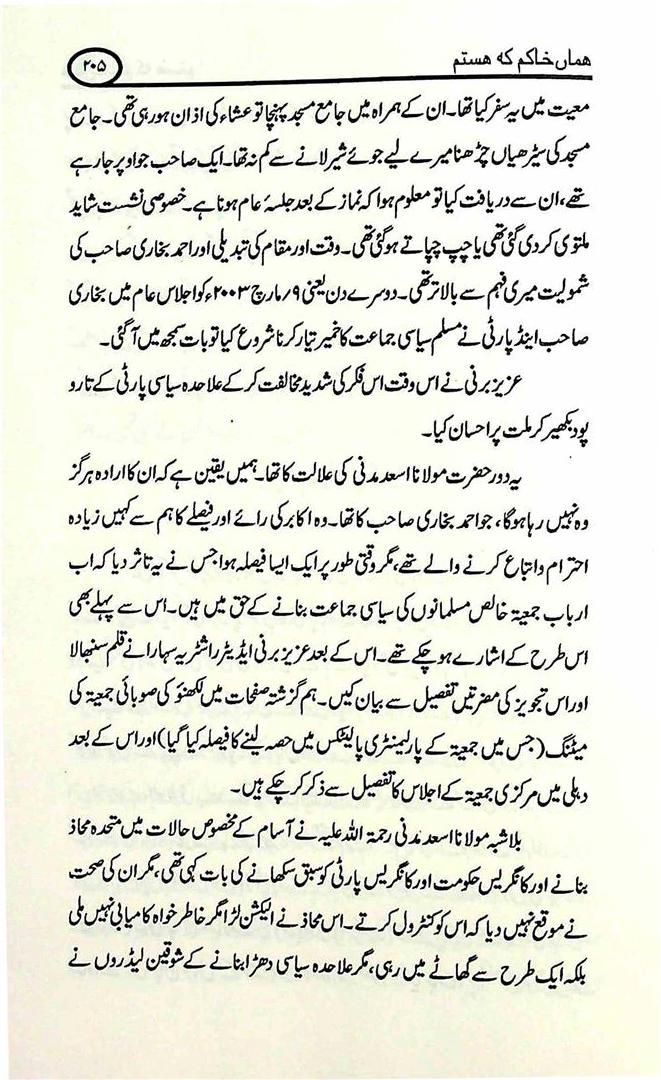 هماں خاکم که هستم
۲۰۵
معیت میں یہ سفر کیا تھا۔ ان کے ہمراہ میں جامع مسجد پہنچا تو عشاء کی اذان ہو رہی تھی۔ جامع
مسجد کی سیڑھیاں چڑھنا میرے لیے جوئے شیر لانے سے کم نہ تھا۔ ایک صاحب جو اوپر جا رہے
تھے، ان سے دریافت کیا تو معلوم ہوا کہ نماز کے بعد جلسۂ عام ہونا ہے۔ خصوصی نشست شاید
ملتوی کر دی گئی تھی یا چپ چپاتے ہو گئی تھی۔ وقت اور مقام کی تبدیلی اور احمد بخاری صاحب کی
شمولیت میری فہم سے بالاتر تھی۔ دوسرے دن یعنی ۹/مارچ ۲۰۰۳ء کو اجلاس عام میں بخاری
صاحب اینڈ پارٹی نے مسلم سیاسی جماعت کا خمیر تیار کرنا شروع کیا تو بات سمجھ میں آ گئی۔
عزیز برنی نے اس وقت اس فکر کی شدید مخالفت کر کے علاحدہ سیاسی پارٹی کے تار و
پود بکھیر کر ملت پر احسان کیا۔
یہ دور حضرت مولانا اسعد مدنی کی علالت کا تھا۔ ہمیں یقین ہے کہ ان کا ارادہ ہرگز
وہ نہیں رہا ہوگا، جو احمد بخاری صاحب کا تھا۔ وہ اکابر کی رائے اور فیصلے کا ہم سے کہیں زیادہ
احترام و اتباع کرنے والے تھے، مگر وقتی طور پر ایک ایسا فیصلہ ہوا جس نے یہ تاثر دیا کہ اب
ارباب جمعیۃ خالص مسلمانوں کی سیاسی جماعت بنانے کے حق میں ہیں۔ اس سے پہلے بھی
اس طرح کے اشارے ہو چکے تھے۔ اس کے بعد عزیز برنی ایڈیٹر راشٹریہ سہارا نے قلم سنبھالا
اور اس تجویز کی مضرتیں تفصیل سے بیان کیں۔ ہم گزشتہ صفحات میں لکھنؤ کی صوبائی جمعیۃ کی
میٹنگ (جس میں جمعیۃ کے پارلیمنٹری پالیٹکس میں حصہ لینے کا فیصلہ کیا گیا) اور اس کے بعد
دہلی میں مرکزی جمعیۃ کے اجلاس کا تفصیل سے ذکر کر چکے ہیں۔
بلاشبہ مولانا اسعد مدنی رحمۃ اللہ علیہ نے آسام کے مخصوص حالات میں متحدہ محاذ
بنانے اور کانگریس حکومت اور کانگریس پارٹی کو سبق سکھانے کی بات کہی تھی، مگر ان کی صحت
نے موقع نہیں دیا کہ اس کو کنٹرول کرتے۔ اس محاذ نے الیکشن لڑا مگر خاطر خواہ کامیابی نہیں ملی
بلکہ ایک طرح سے گھاٹے میں رہی، مگر علاحدہ سیاسی دھڑا بنانے کے شوقین لیڈروں نے